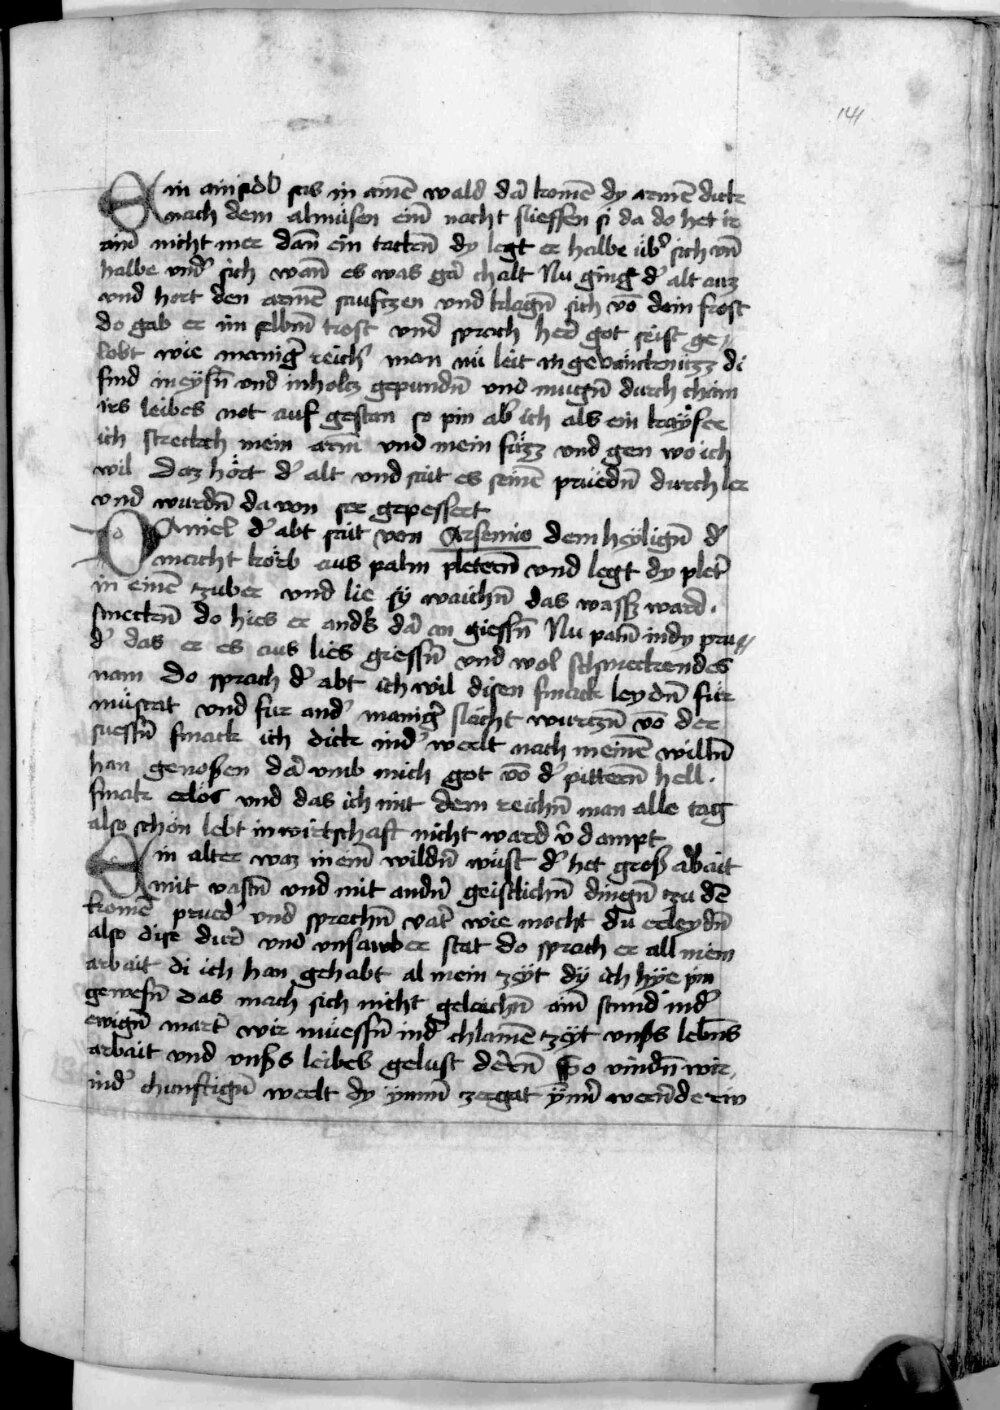 141
Ein ainsidl sas in ainē wald dā komē dy armē dick
nach dem almüsen ein̄ nacht slieffen si da do het ir
ain̄ nicht mer dan̄ ein tacken̄ dy legt er halbe üb̄ sich vn̄
halbe vnd̄ sich wan̄ es was gā chalt Nu ging d̄ alt auz
vnd hort den armē seuftzen vnd klagn̄ sich vō dem frost
do gab er im selbm̄ trost vnd sprach her̄ got seist ge⸗
lobt wie maniḡ reich̄ man nü leit in gevancknüzz di
sind in eysn̄ vnd in holtz gepundn̄ vnd mugn̄ durch chain
irs leibes not auf gestan so pin ab̄ ich als ein kayser
ich streckch mein arm̄ vnd mein füzz vnd gen wo ich
wil Daz hört d̄ alt vnd sait es seinē prüedn̄ durch ler
vnd wurdn̄ da von ser gepessert
Daniel d̄ abt sait von Arsenio dem heylign̄ d̄
macht körb aus palm pletern̄ vnd legt dy plet̄
in einē zuber vnd lie sy waichn̄ das wassz ward
smecken̄ do hies er anders dā an giessn̄ Nu patn̄ in dy pru⸗
d̄ das er es aus lies giessn̄ vnd wol schmeckendes
nam Do sprach d̄ abt ich wil disen smack leydn̄ für
müscat vnd fur and̄ maniḡ slacht wurtzn̄ vō der
suessn̄ smack ich dick in d̄ werlt nach meinē willn̄
han genoßen dā vmb mich got vō d̄ pittern̄ hell
smak erlös vnd das ich mit dem reichn̄ man alle tag
also schön lebt in wirtschaft nicht ward v̄dampt
Ein alter waz in ein̄ wildn̄ wüst d̄ het groß arbait
mit vastn̄ vnd mit andn̄ geistlichn̄ dingn̄ tzu dē
komē prued̄ vnd sprachn̄ vat̄ wie mocht du erleydn̄
also dise dur̄ vnd vnsawber stat do sprach er all mein
arbait di ich han gehabt al mein zeyt dy ich hye pin
gewesn̄ das mach sich nicht geleichn̄ ain̄ stund in d̄
ewign̄ mart̄ wir müessn̄ in d̄ chlainē tzeyt vnsers lebn̄s
arbait vnd vnsers leibes gelust dēren̄ So vindn̄ wir
in d̄ chunftign̄ werlt dy ymm̄ zergat ymm̄ wern̄de rw